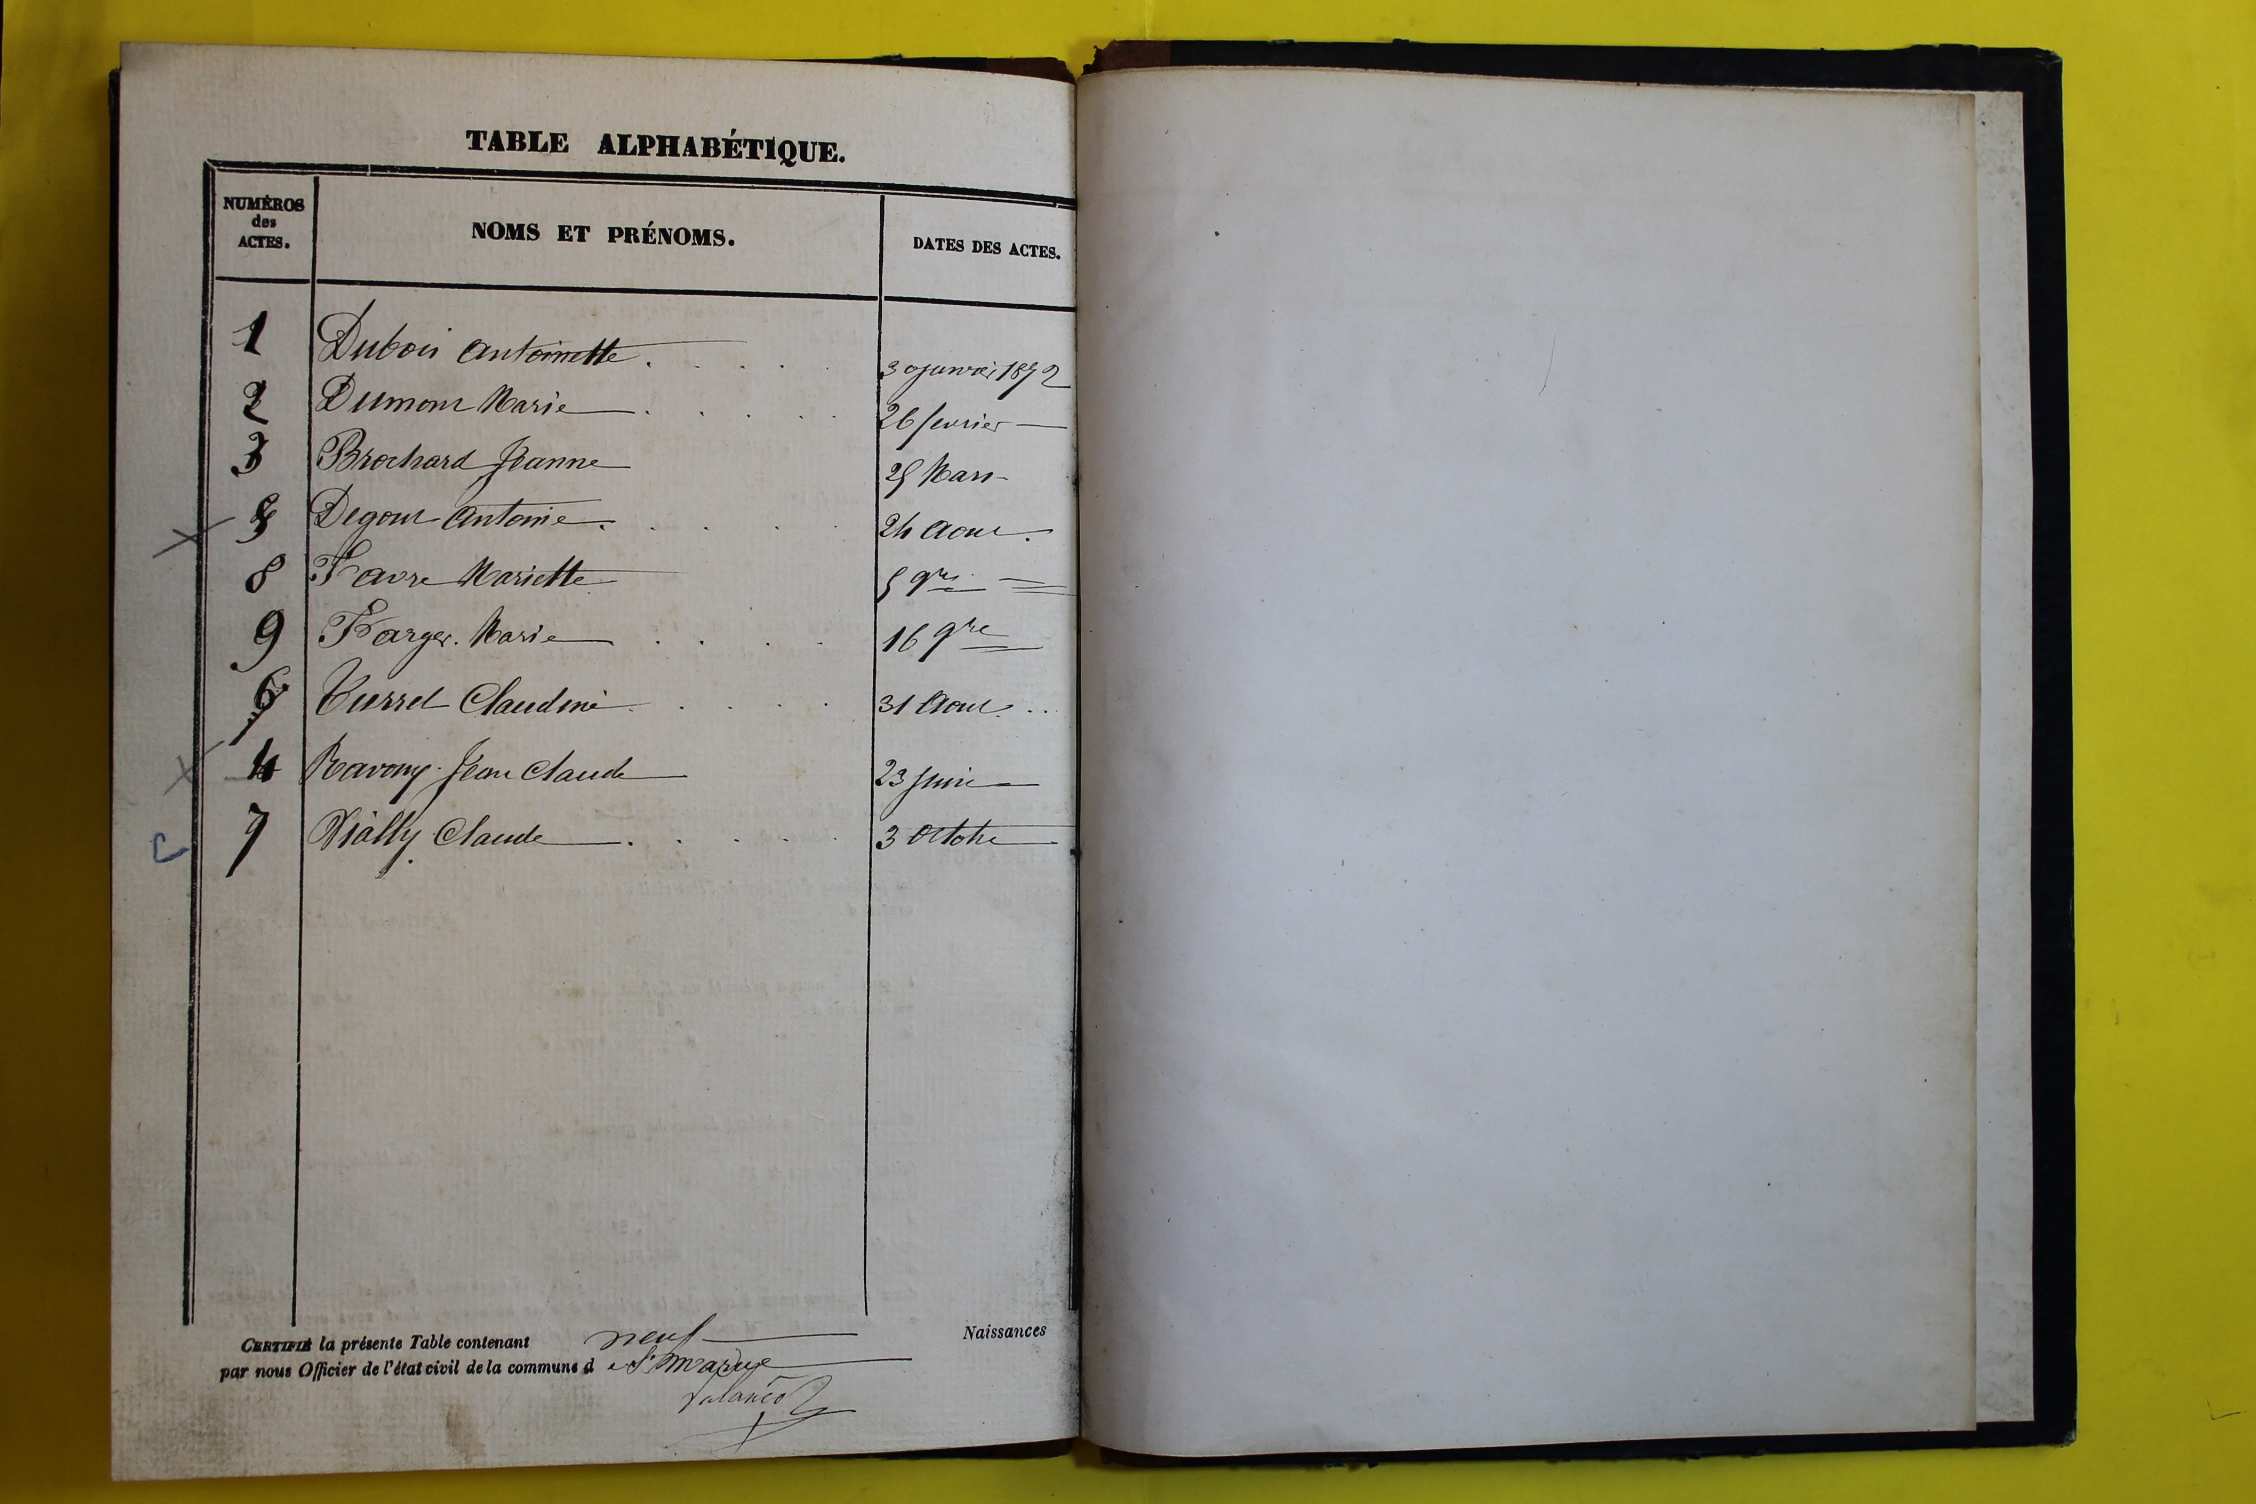 TABLE ALPHABÉTIQUE.
NUMÉROS
des
ACTES.
NOMS ET PRÉNOMS.
DATES DES ACTES.
1 Dubois Antoinette 30 janvier 1892
2 Dumont Marie 26 fevrier
3 Brochard Jeanne 25 Mars
5 Degout Antoine 24 Aout
8 Favre Mariette 5 9bre
9 Farger Marie 16 9bre
6 Turrel Claudine 31 Aout
4 Ravony Jean Claude 23 Juin
7 Vially Claude 3 Octobre
C
CERTIFIÉ la présente Table contenant neuf Naissances
par nous Officier de l'état civil de la commune de St